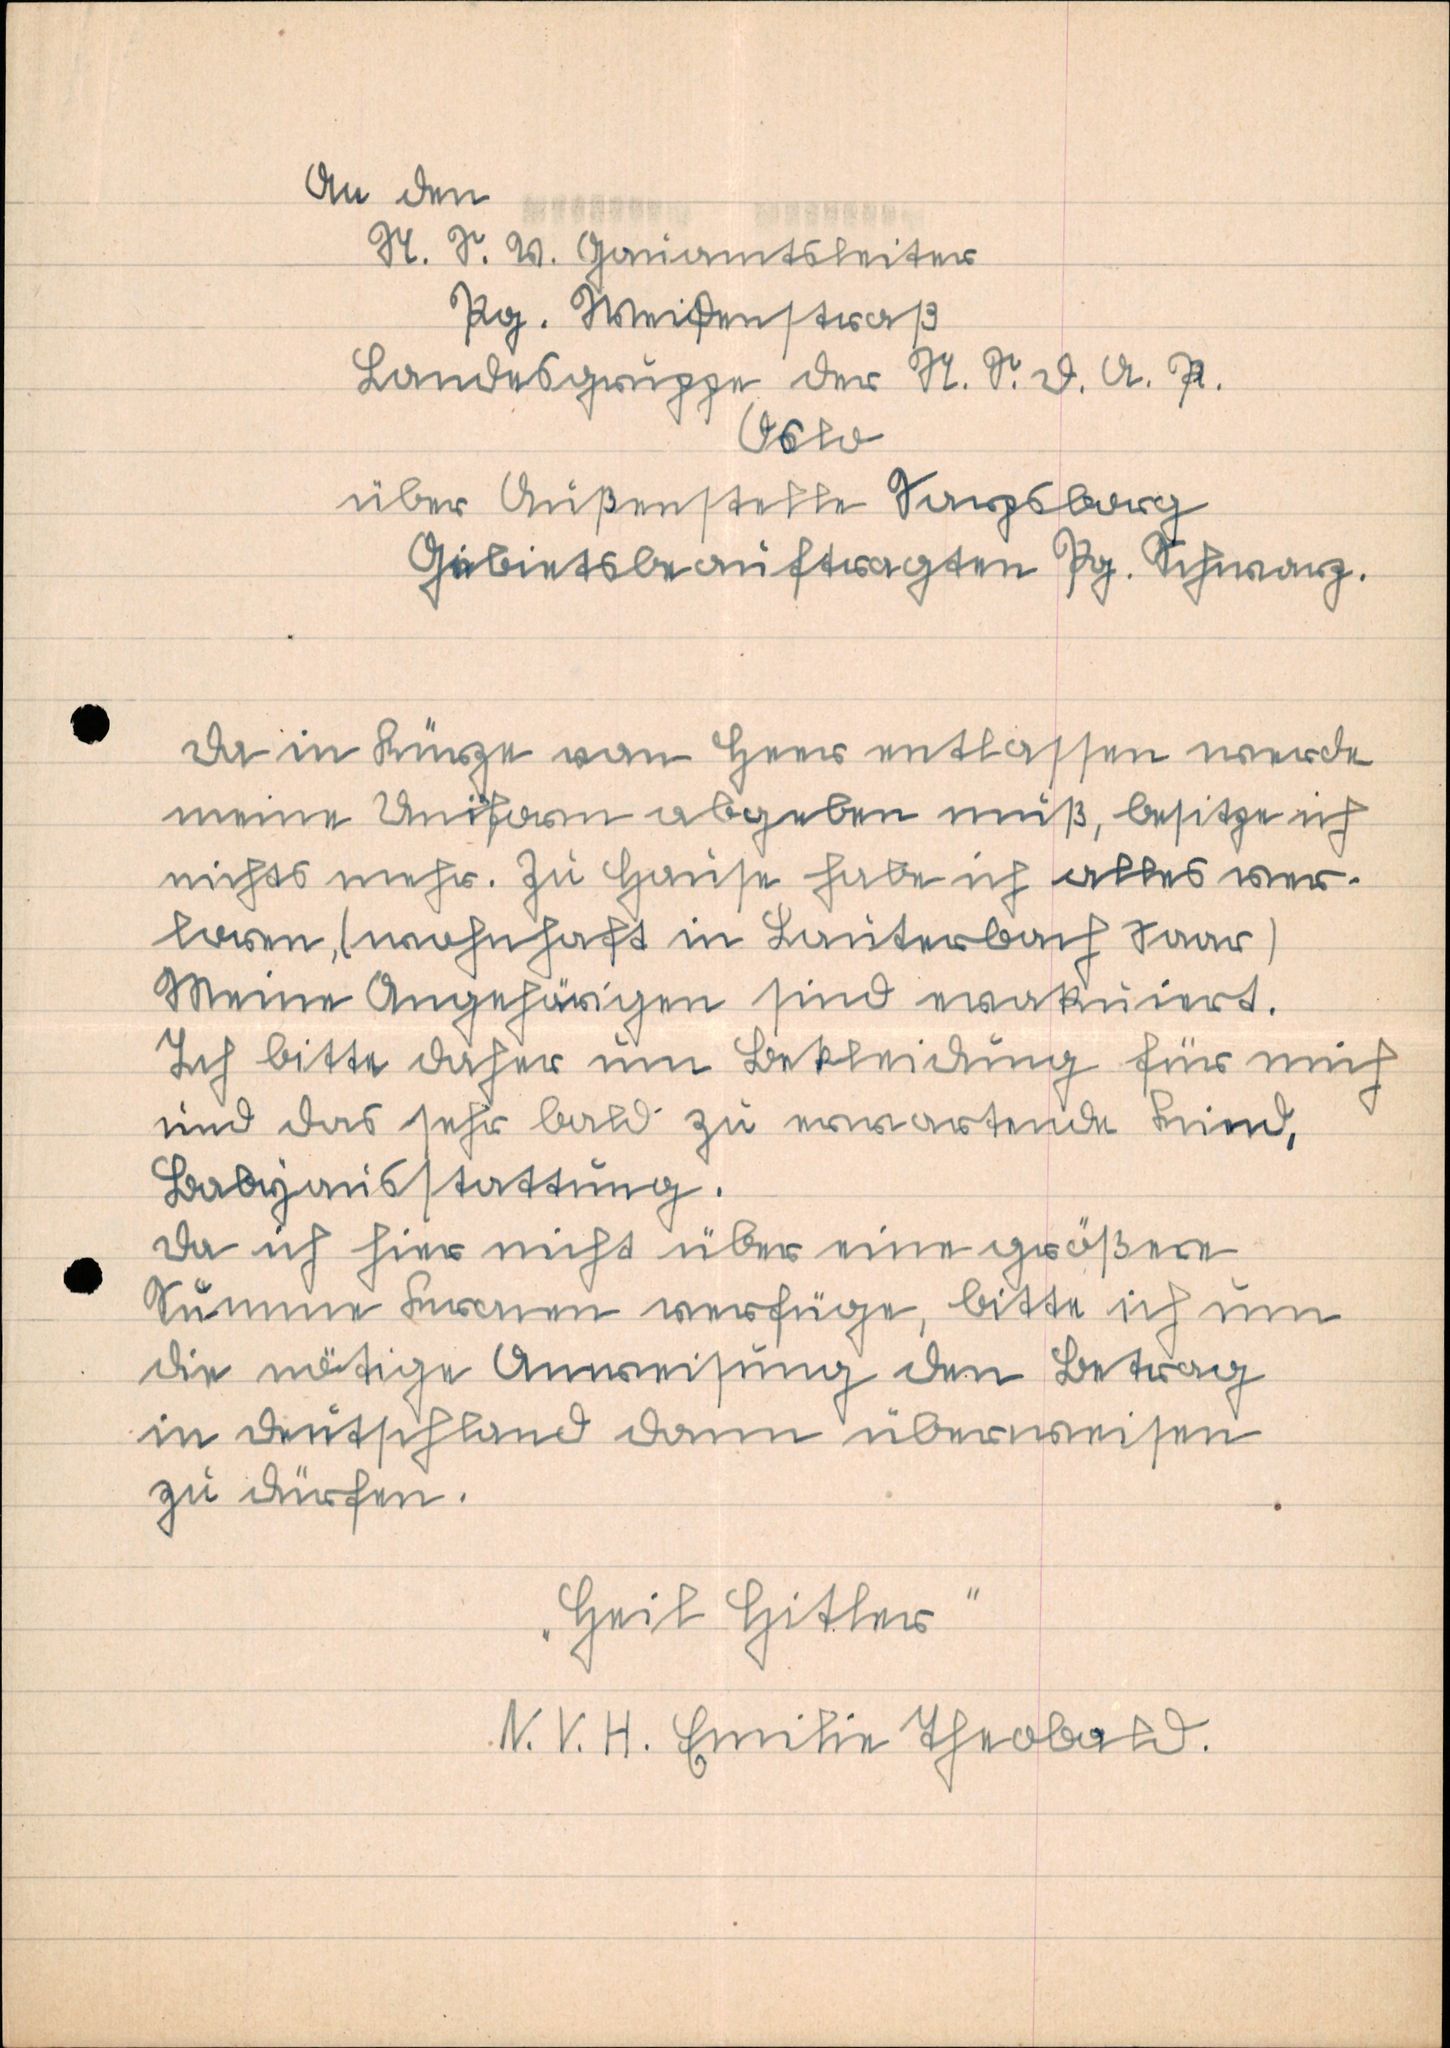 An den
N. S. V. Gauamtsleiter
Pg. Weißenstraß
Landesgruppe der N. S. D. A. P.
Oslo
über Außenstelle Sarpsborg
Gebietsbeauftragten Pg. Schwarz.
Da in Kürze vom Heer entlassen werde
meine Uniform abgeben muß, besitze ich
nichts mehr. Zu Hause habe ich alles ver-
loren, (wohnhaft in Lauterbach Saar)
Meine Angehörigen sind evakuiert.
Ich bitte daher um Bekleidung für mich
und das sehr bald zu erwartende Kind,
Babyausstattung.
Da ich hier nicht über eine größere
Summe Kronen verfüge, bitte ich um
die nötige Anweisung den Betrag
in Deutschland dann überweisen
zu dürfen.
„Heil Hitler"
N. V. H. Emilie Theobald.